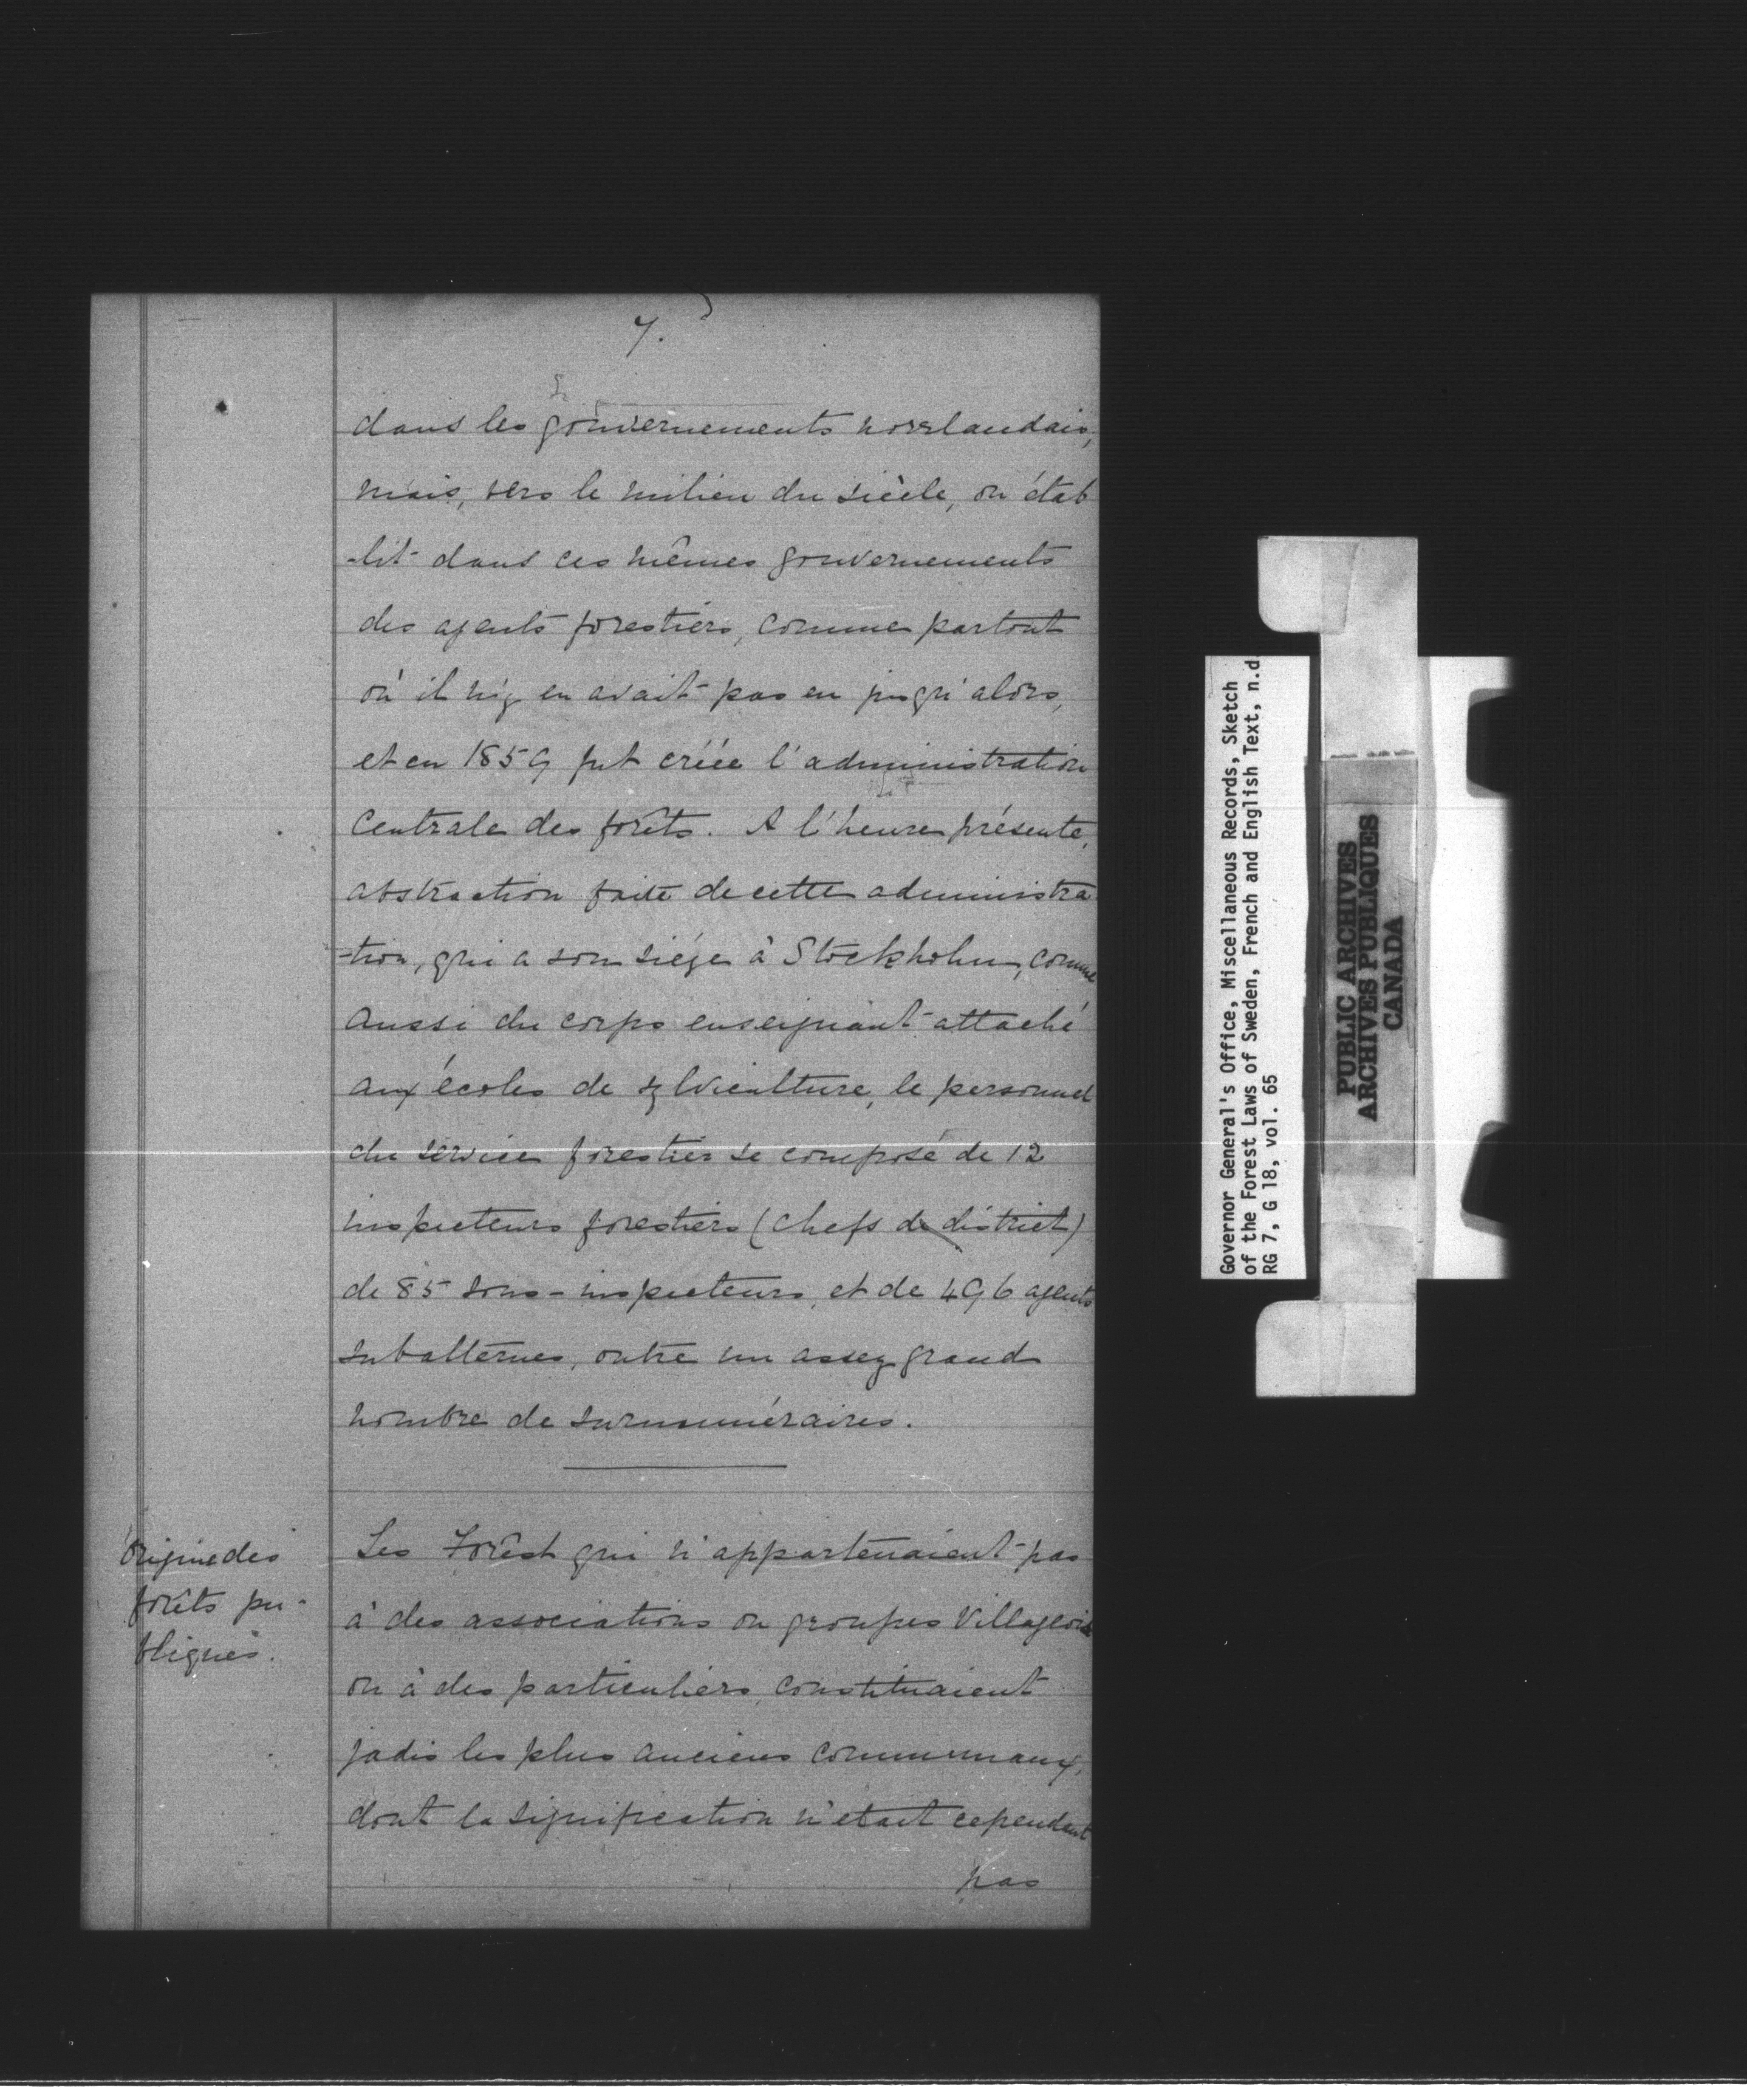 7.
dans les gouvernements norrlandais,
mais, vers le milien du siècle, on étab
-lit dans ces mêmes gouvernements
des agents forestiers, comme partout
où il n'y en avait pas eu jusqu'alors,
et en 1859 fut créée l'administration
Centrale des forêts. A l'heure présente,
abstraction faite de cette administra
-tion, qui a son siége à Stockholm, comme
aussi du corps enseignant attaché
aux écoles de sylviculture, le personnel
du service forestier se compose de 12
inspecteurs forestiers (chefs de district)
de 85 sous-inspecteurs, et de 496 agents
subalternes, outre un assez grand
nombre de surnuméraires.
Origine des
forêts pu-
bliques.
Les Forêst qui n'appartenaient pas
à des associations ou groupes Villageois
ou à des particuliers, constituaient
jadis les plus anciens communaux,
dont la signification n'etait cependant
pas
Governor General's Office, Miscellaneous Records, Sketch
of the Forest Laws of Sweden, French and English Text, n.d
RG 7, G 18, vol. 65
PUBLIC ARCHIVES
ARCHIVES PUBLIQUES
CANADA